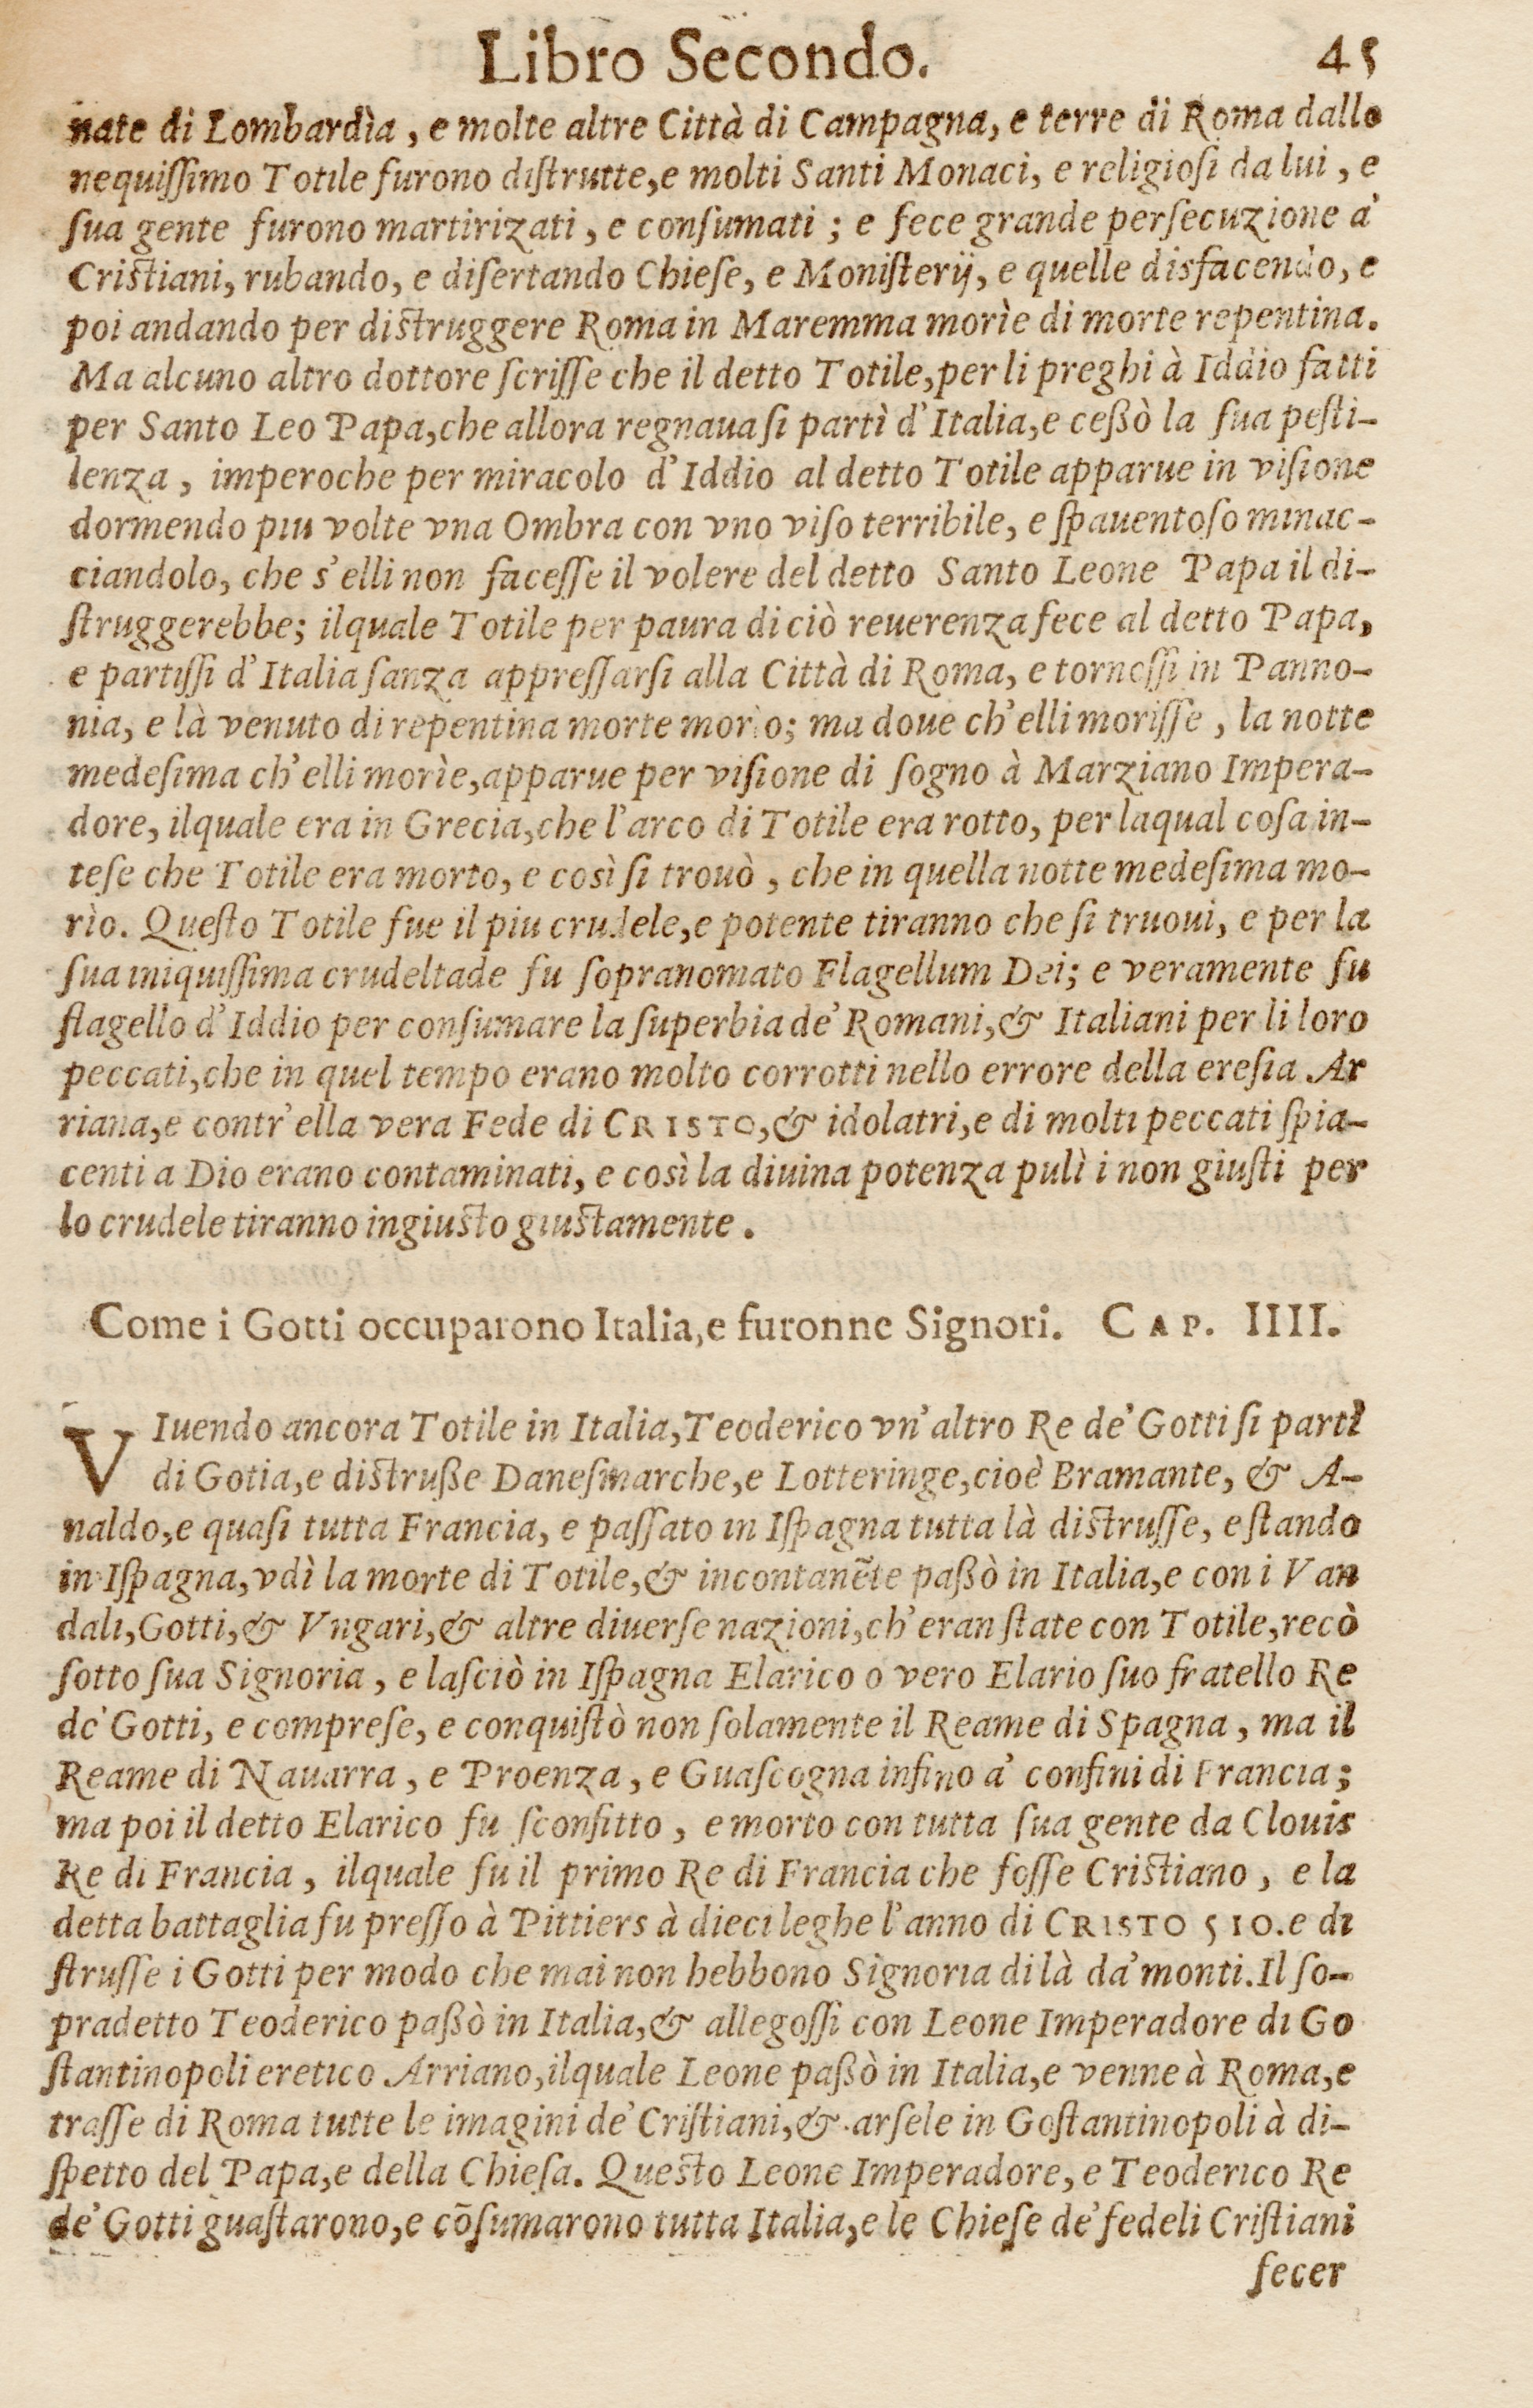 Libro Secondo. 45
nate di Lombardìa, e molte altre Città di Campagna, e terre di Roma dallo
nequiſſimo Totile furono diſtrutte,e molti Santi Monaci, e religioſi da lui, e
ſua gente furono martirizati, e conſumati; e fece grande perſecuzione a'
Criſtiani, rubando, e diſertando Chieſe, e Moniſterij, e quelle disfacendo, e
poi andando per diſtruggere Roma in Maremma morìe di morte repentina.
Ma alcuno altro dottore ſcriſſe che il detto Totile,per li preghi à Iddio fatti
per Santo Leo Papa,che allora regnaua ſi partì d'Italia,e ceßò la ſua peſti-
lenza, imperoche per miracolo d'Iddio al detto Totile apparue in viſione
dormendo piu volte vna Ombra con vno viſo terribile, e ſpauentoſo minac-
ciandolo, che s'elli non faceſſe il volere del detto Santo Leone Papa il di-
ſtruggerebbe; ilquale Totile per paura di ciò reuerenza fece al detto Papa,
e partiſſi d'Italia ſanza appreſſarſi alla Città di Roma, e torneſſi in Panno-
nia, e là venuto di repentina morte morìo; ma doue ch'elli moriſſe, la notte
medeſima ch'elli morìe,apparue per viſione di ſogno à Marziano Impera-
dore, ilquale era in Grecia,che l'arco di Totile era rotto, per laqual coſa in-
teſe che Totile era morto, e così ſi trouò, che in quella notte medeſima mo-
rìo. Queſto Totile fue il piu crudele,e potente tiranno che ſi truoui, e per la
ſua iniquiſſima crudeltade fu ſopranomato Flagellum Dei; e veramente fu
flagello d'Iddio per conſumare la ſuperbia de' Romani,& Italiani per li loro
peccati,che in quel tempo erano molto corrotti nello errore della ereſia Ar
riana,e contr'ella vera Fede di CRISTO,& idolatri,e di molti peccati ſpia-
centi a Dio erano contaminati, e così la diuina potenza pulì i non giuſti per
lo crudele tiranno ingiuſto giuſtamente.
Come i Gotti occuparono Italia,e furonne Signori. CAP. IIII.
VIuendo ancora Totile in Italia,Teoderico vn'altro Re de' Gotti ſi partì
di Gotia,e diſtruße Daneſmarche,e Lotteringe,cioè Bramante, & A-
naldo,e quaſi tutta Francia, e paſſato in Iſpagna tutta là diſtruſſe, e ſtando
in Iſpagna,vdì la morte di Totile,& incontanẽte paßò in Italia,e con i Van
dali,Gotti,& Vngari,& altre diuerſe nazioni,ch'eran ſtate con Totile,recò
ſotto ſua Signoria, e laſciò in Iſpagna Elarico o vero Elario ſuo fratello Re
de' Gotti, e compreſe, e conquiſtò non ſolamente il Reame di Spagna, ma il
Reame di Nauarra, e Proenza, e Guaſcogna infino a' confini di Francia;
ma poi il detto Elarico fu ſconfitto, e morto con tutta ſua gente da Clouis
Re di Francia, ilquale fu il primo Re di Francia che foſſe Criſtiano, e la
detta battaglia fu preſſo à Pittiers à dieci leghe l'anno di CRISTO 510.e di
ſtruſſe i Gotti per modo che mai non hebbono Signoria di là da' monti.Il ſo-
pradetto Teoderico paßò in Italia,& allegoſſi con Leone Imperadore di Go
ſtantinopoli eretico Arriano,ilquale Leone paßò in Italia,e venne à Roma,e
traſſe di Roma tutte le imagini de' Criſtiani,& arſele in Goſtantinopoli à di-
ſpetto del Papa,e della Chieſa. Queſto Leone Imperadore, e Teoderico Re
de' Gotti guaſtarono,e cõſumarono tutta Italia,e le Chieſe de' fedeli Criſtiani
fecer